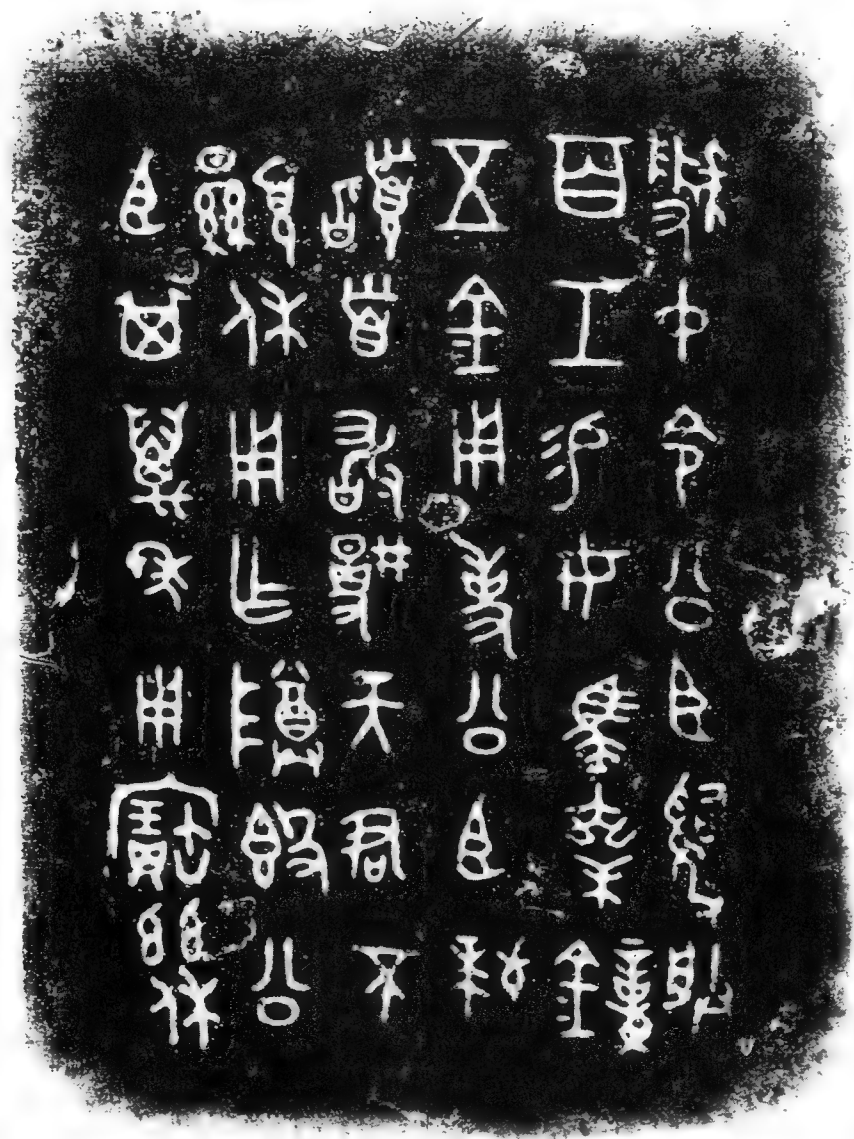 虢中令公臣𤔲朕
百工易女馬乘鐘
五金用事公臣拜
𩒨首敢揚天君不
顯休用乍尊簋公
臣其萬年用寶茲休